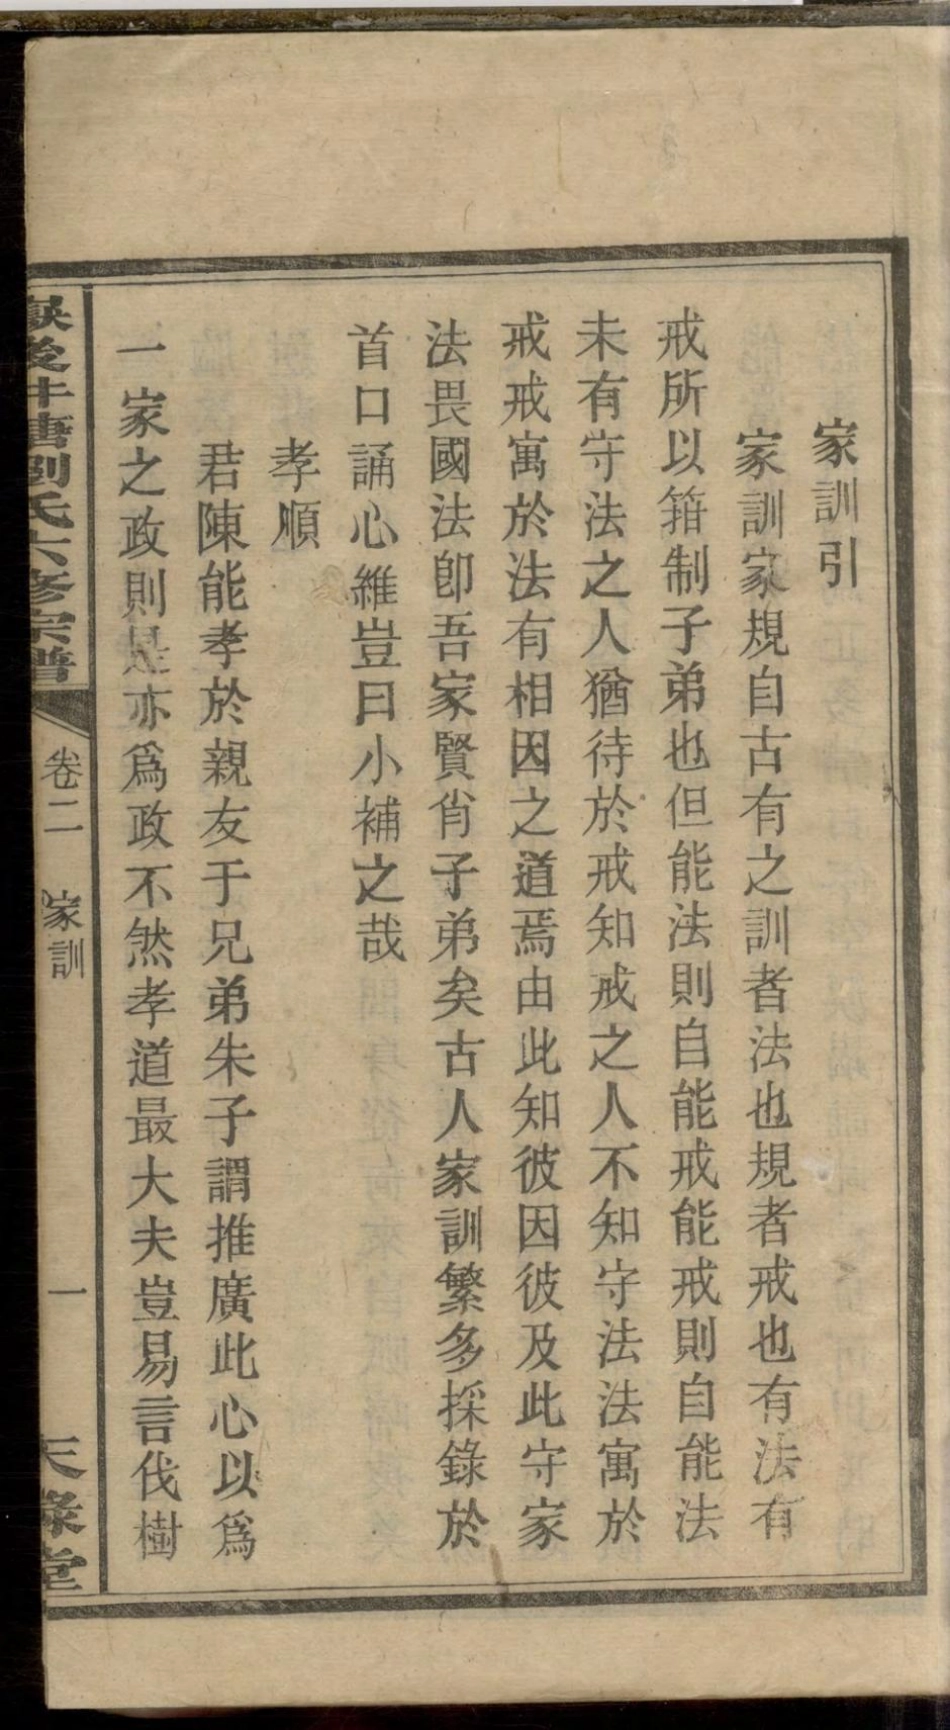 家訓引
家訓家規自古有之訓者法也規者戒也有法有
戒所以箝制子弟也但能法則自能戒能戒則自能法
未有守法之人猶待於戒知戒之人不知守法法寓於
戒戒寓於法有相因之道焉由此知彼因彼及此守家
法畏國法卽吾家賢肖子弟矣古人家訓繁多採錄於
首口誦心維豈曰小補之哉
孝順
君陳能孝於親友于兄弟朱子謂推廣此心以爲
一家之政則是亦爲政不然孝道最大夫豈易言伐樹
後牛塘劉氏六修宗譜
卷二
家訓
一
天祿堂